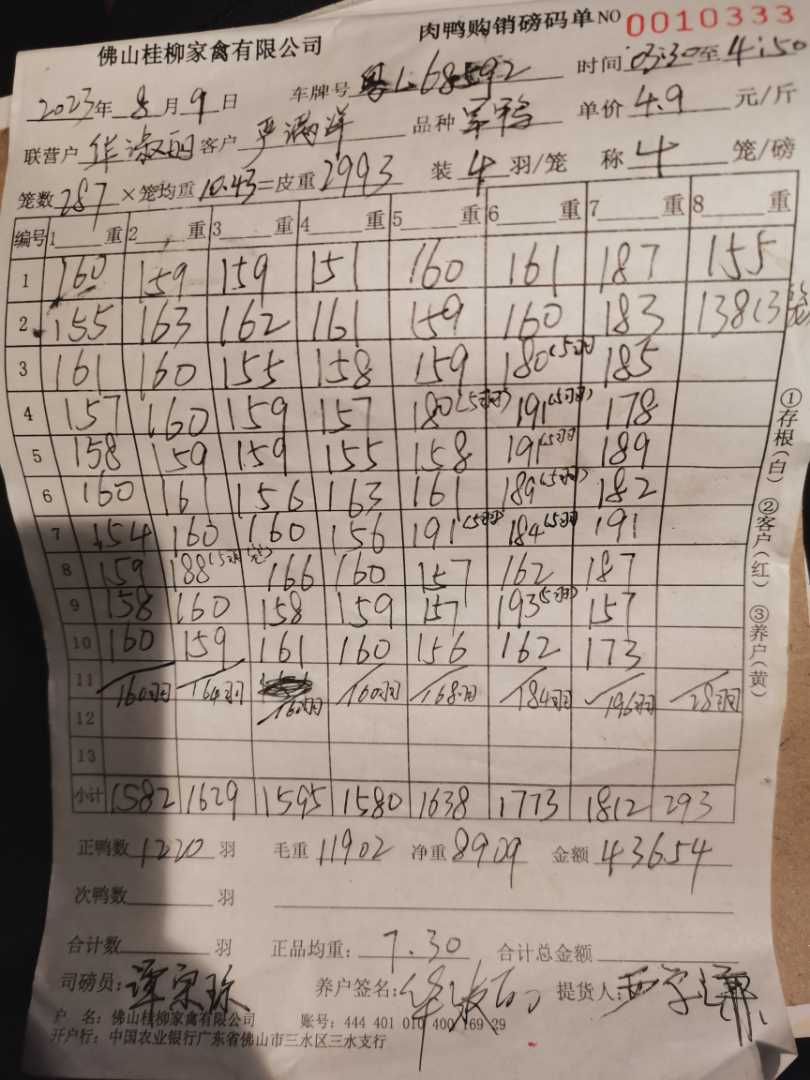 佛山桂柳家禽有限公司 肉鸭购销磅码单 NO 0010333
2023年8月9日 车牌号 粤L68592 时间 03:30至4:50
联营户 华淑丽 客户 严满洋 品种 军鸭 单价 4.9 元/斤
笼数 287 ×笼均重 10.43 =皮重 2993 装 4 羽/笼 称 4 笼/磅
编号 1 重 2 重 3 重 4 重 5 重 6 重 7 重 8 重
1 160 159 159 151 160 161 187 155
2 155 163 162 161 159 160 183 138(3笼
3 161 160 155 158 159 180(5羽) 185
4 157 160 159 157 180(5羽) 191(5羽) 178
5 158 159 159 155 158 191(5羽) 189
6 160 161 156 163 161 189(5羽) 182
7 154 160 160 156 191(5羽) 184(5羽) 191
8 159 188(5羽/笼) 166 160 157 162 187
9 158 160 158 159 157 193(5羽) 157
10 160 159 161 160 156 162 173
11 160羽 164羽 160羽 160羽 168羽 184羽 196羽 28羽
12
13
小计 1582 1629 1595 1580 1638 1773 1812 293
①存根(白) ②客户(红) ③养户(黄)
正鸭数 1220 羽 毛重 11902 净重 8909 金额 43654
次鸭数 羽
合计数 羽 正品均重: 7.30 合计总金额
司磅员: 谭宗珠 养户签名: 华淑丽 提货人:
户 名: 佛山桂柳家禽有限公司 账号: 444 401 010 400 169 29
开户行: 中国农业银行广东省佛山市三水区三水支行